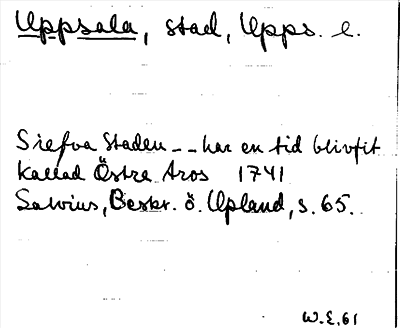 Uppsala, stad, Upps. l.
Siefva Staden -- har en tid blivfit
kallad Östra Aros 1741
Salvius, Beskr. ö. Upland, s. 65.
W.E. 61